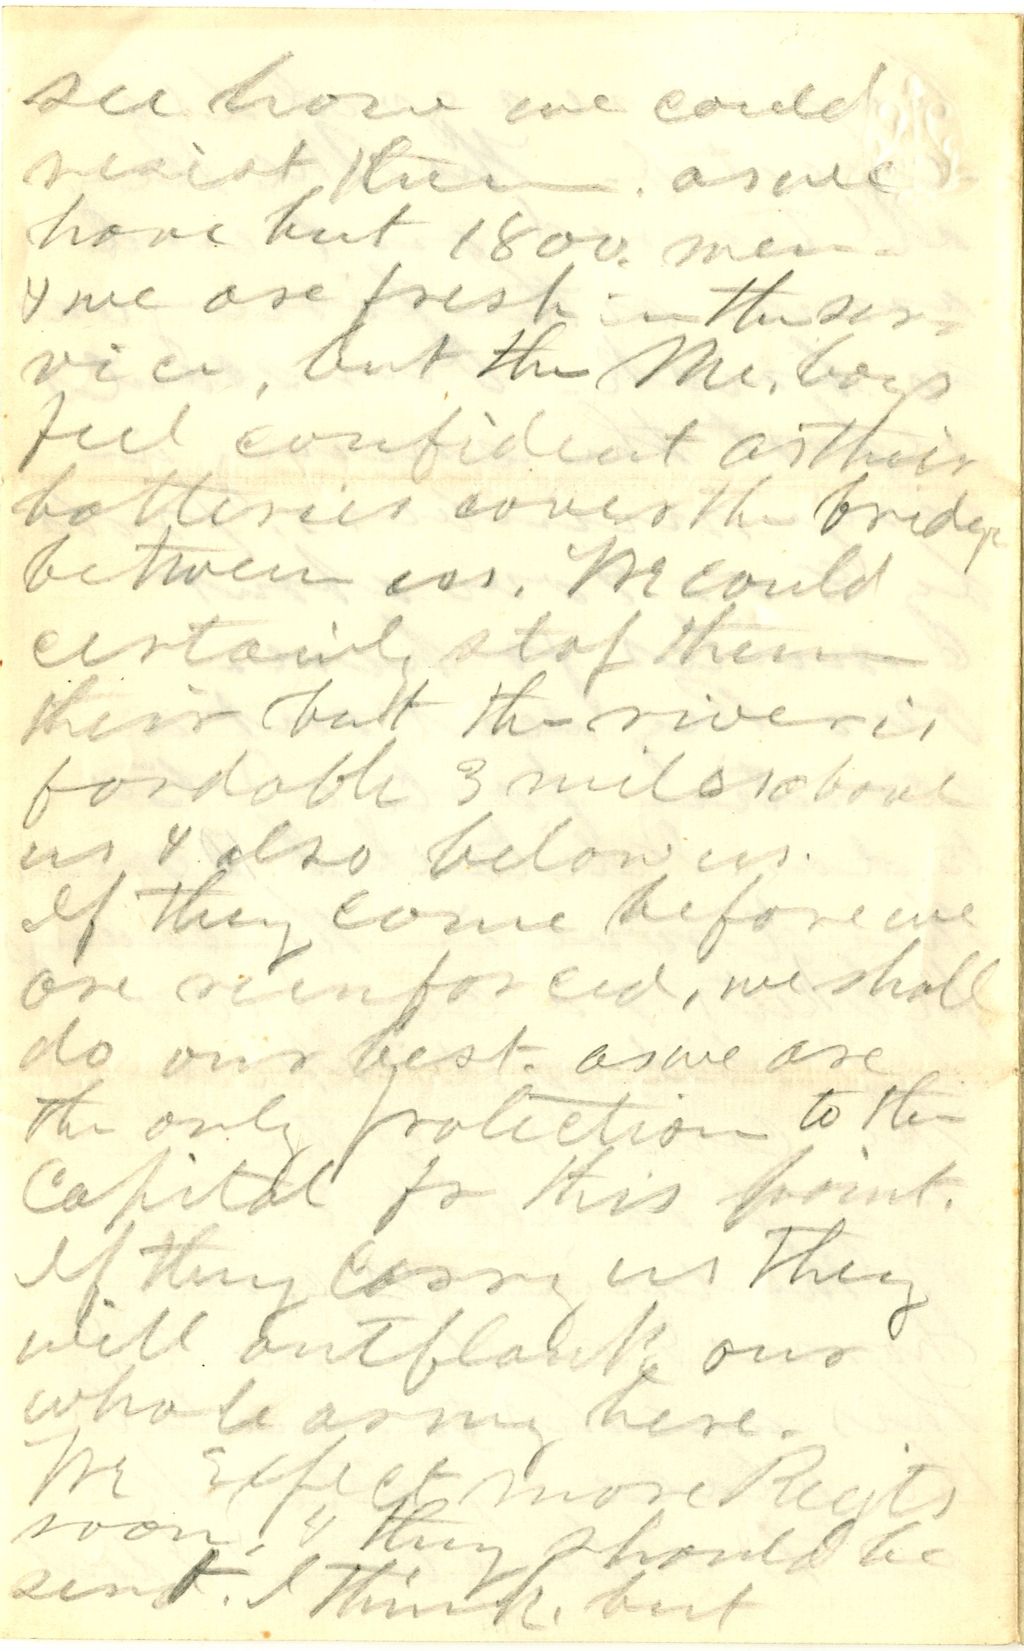 see how we could
resist them. as we
have but 1800. men.
& we are fresh in the ser-
vice, but the Me. boys
feel confident as their
batteries cover the bridge
between us. We could
certainly stop them
their but the river is
fordable 3 miles above
us & also below us.
If they come before we
are reinforced, we shall
do our best. as we are
the only protection to the
Capital fr this point.
If they carry us they
will outflank our
whole army here.
We Expect more Regts
soon, & they should be
sent. I think. but